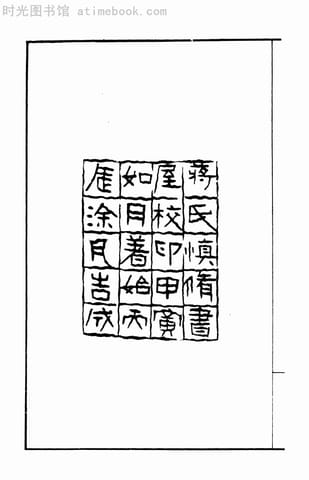 时光图书馆 atimebook.com
蔣氏慎脩書
屋校印甲寅
如月着始丙
辰涂月告成